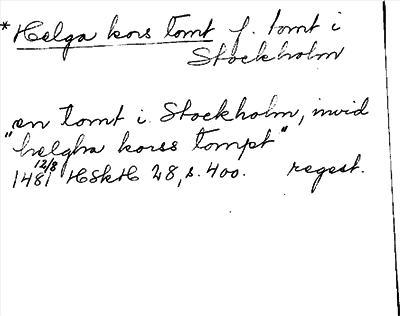 * Helga kors tomt f. tomt i
Stockholm
en tomt i Stockholm, invid
"helgha korss tompt"
12/8
1481 HSkH 28, s. 400. regest.